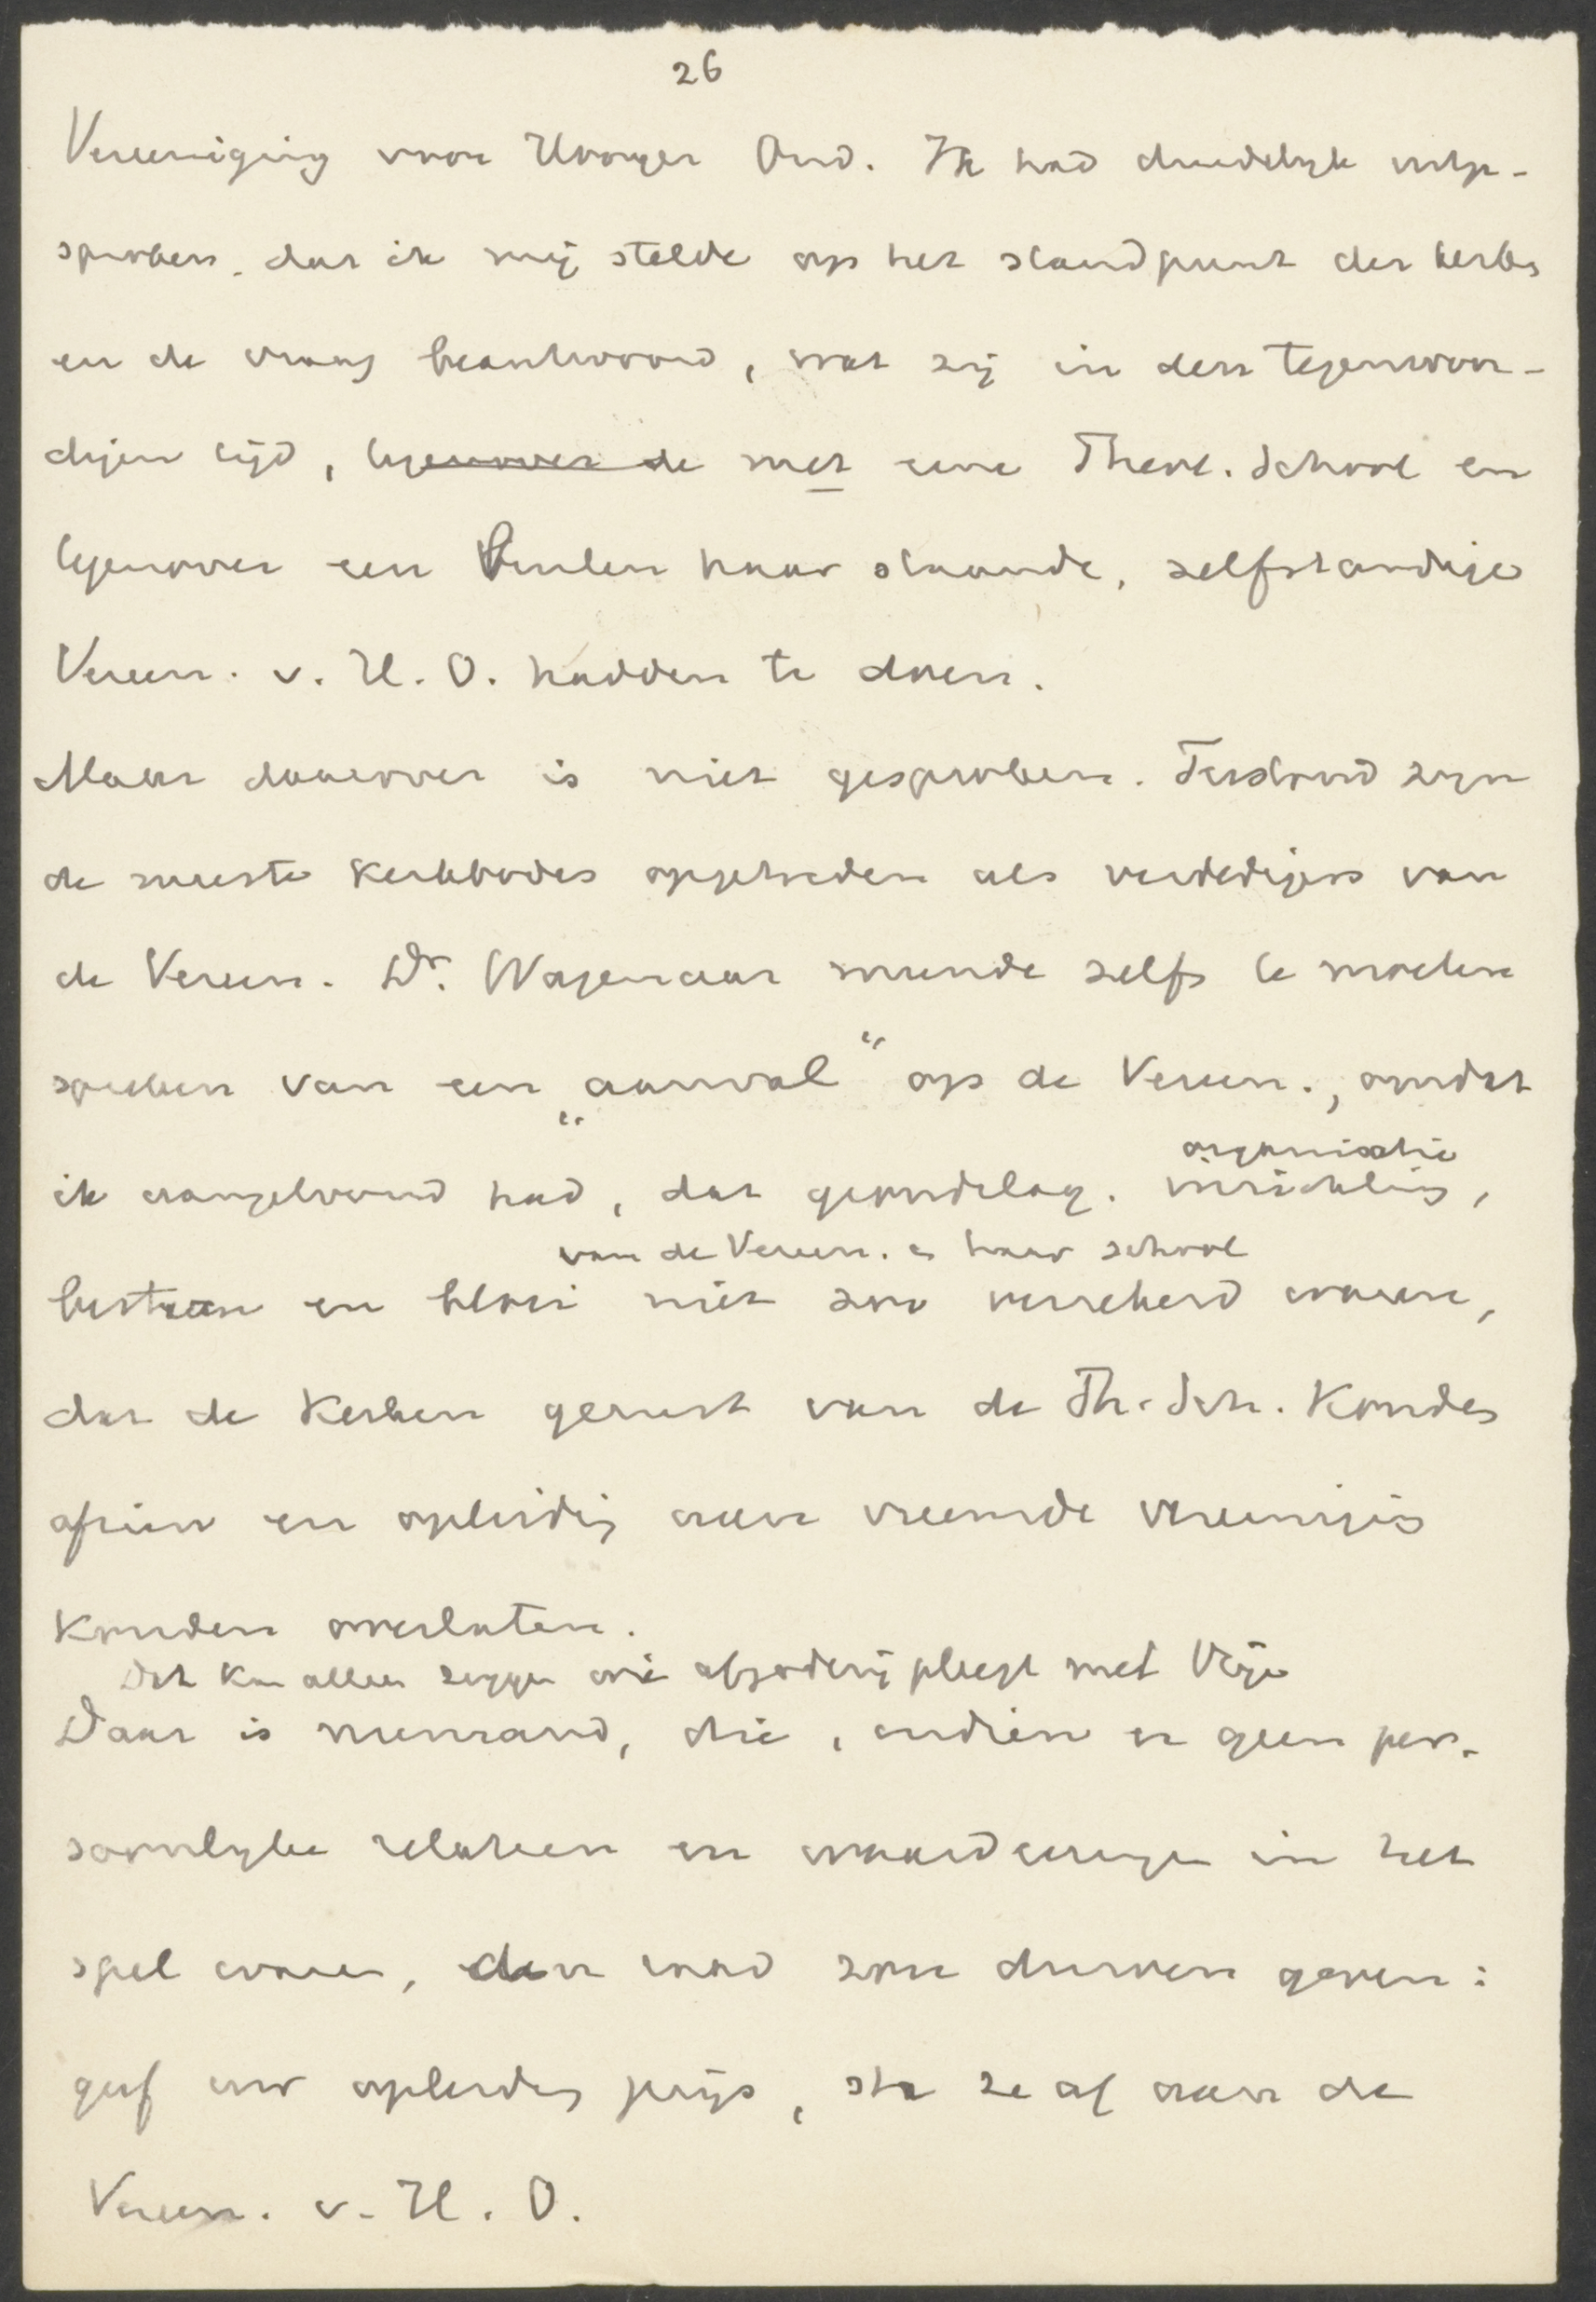 26
Vereeniging voor Hooger Ond. Ik had duidelijk uitge-
sproken, dat ik mij stelde op het standpunt der kerken
en de vraag beantwoord, wat zij in den tegenwoor-
digen tijd, tegenover de met eene Theol. School en
tegenover een buiten haar staande, zelfstandige
Vereen. v. H. O. hadden te doen.
Maar daarover is niet gesproken. Terstond zijn
de meeste Kerkbodes opgetreden als verdedigers van
de Vereen. Dr. Wagenaar meende zelfs te moeten
spreken van een „aanval" op de Vereen., omdat
organisatie
ik aangetoond had, dat grondslag, inrichting,
van de Vereen. en haar school
bestaan en bloei niet zoo verzekerd waren,
dat de Kerken gerust van de Th. Sch. konden
afzien en opleiding aan vreemde vereeniging
konden overlaten.
Dat kan alleen zeggen wie afgoderij pleegt met
Daar is niemand, die, indien er geen per-
soonlijke relatieen en waardeeringen in het
spel waren, den raad zou durven geven:
geef uw opleiding prijs, sta ze af aan de
Vereen. v. H. O.